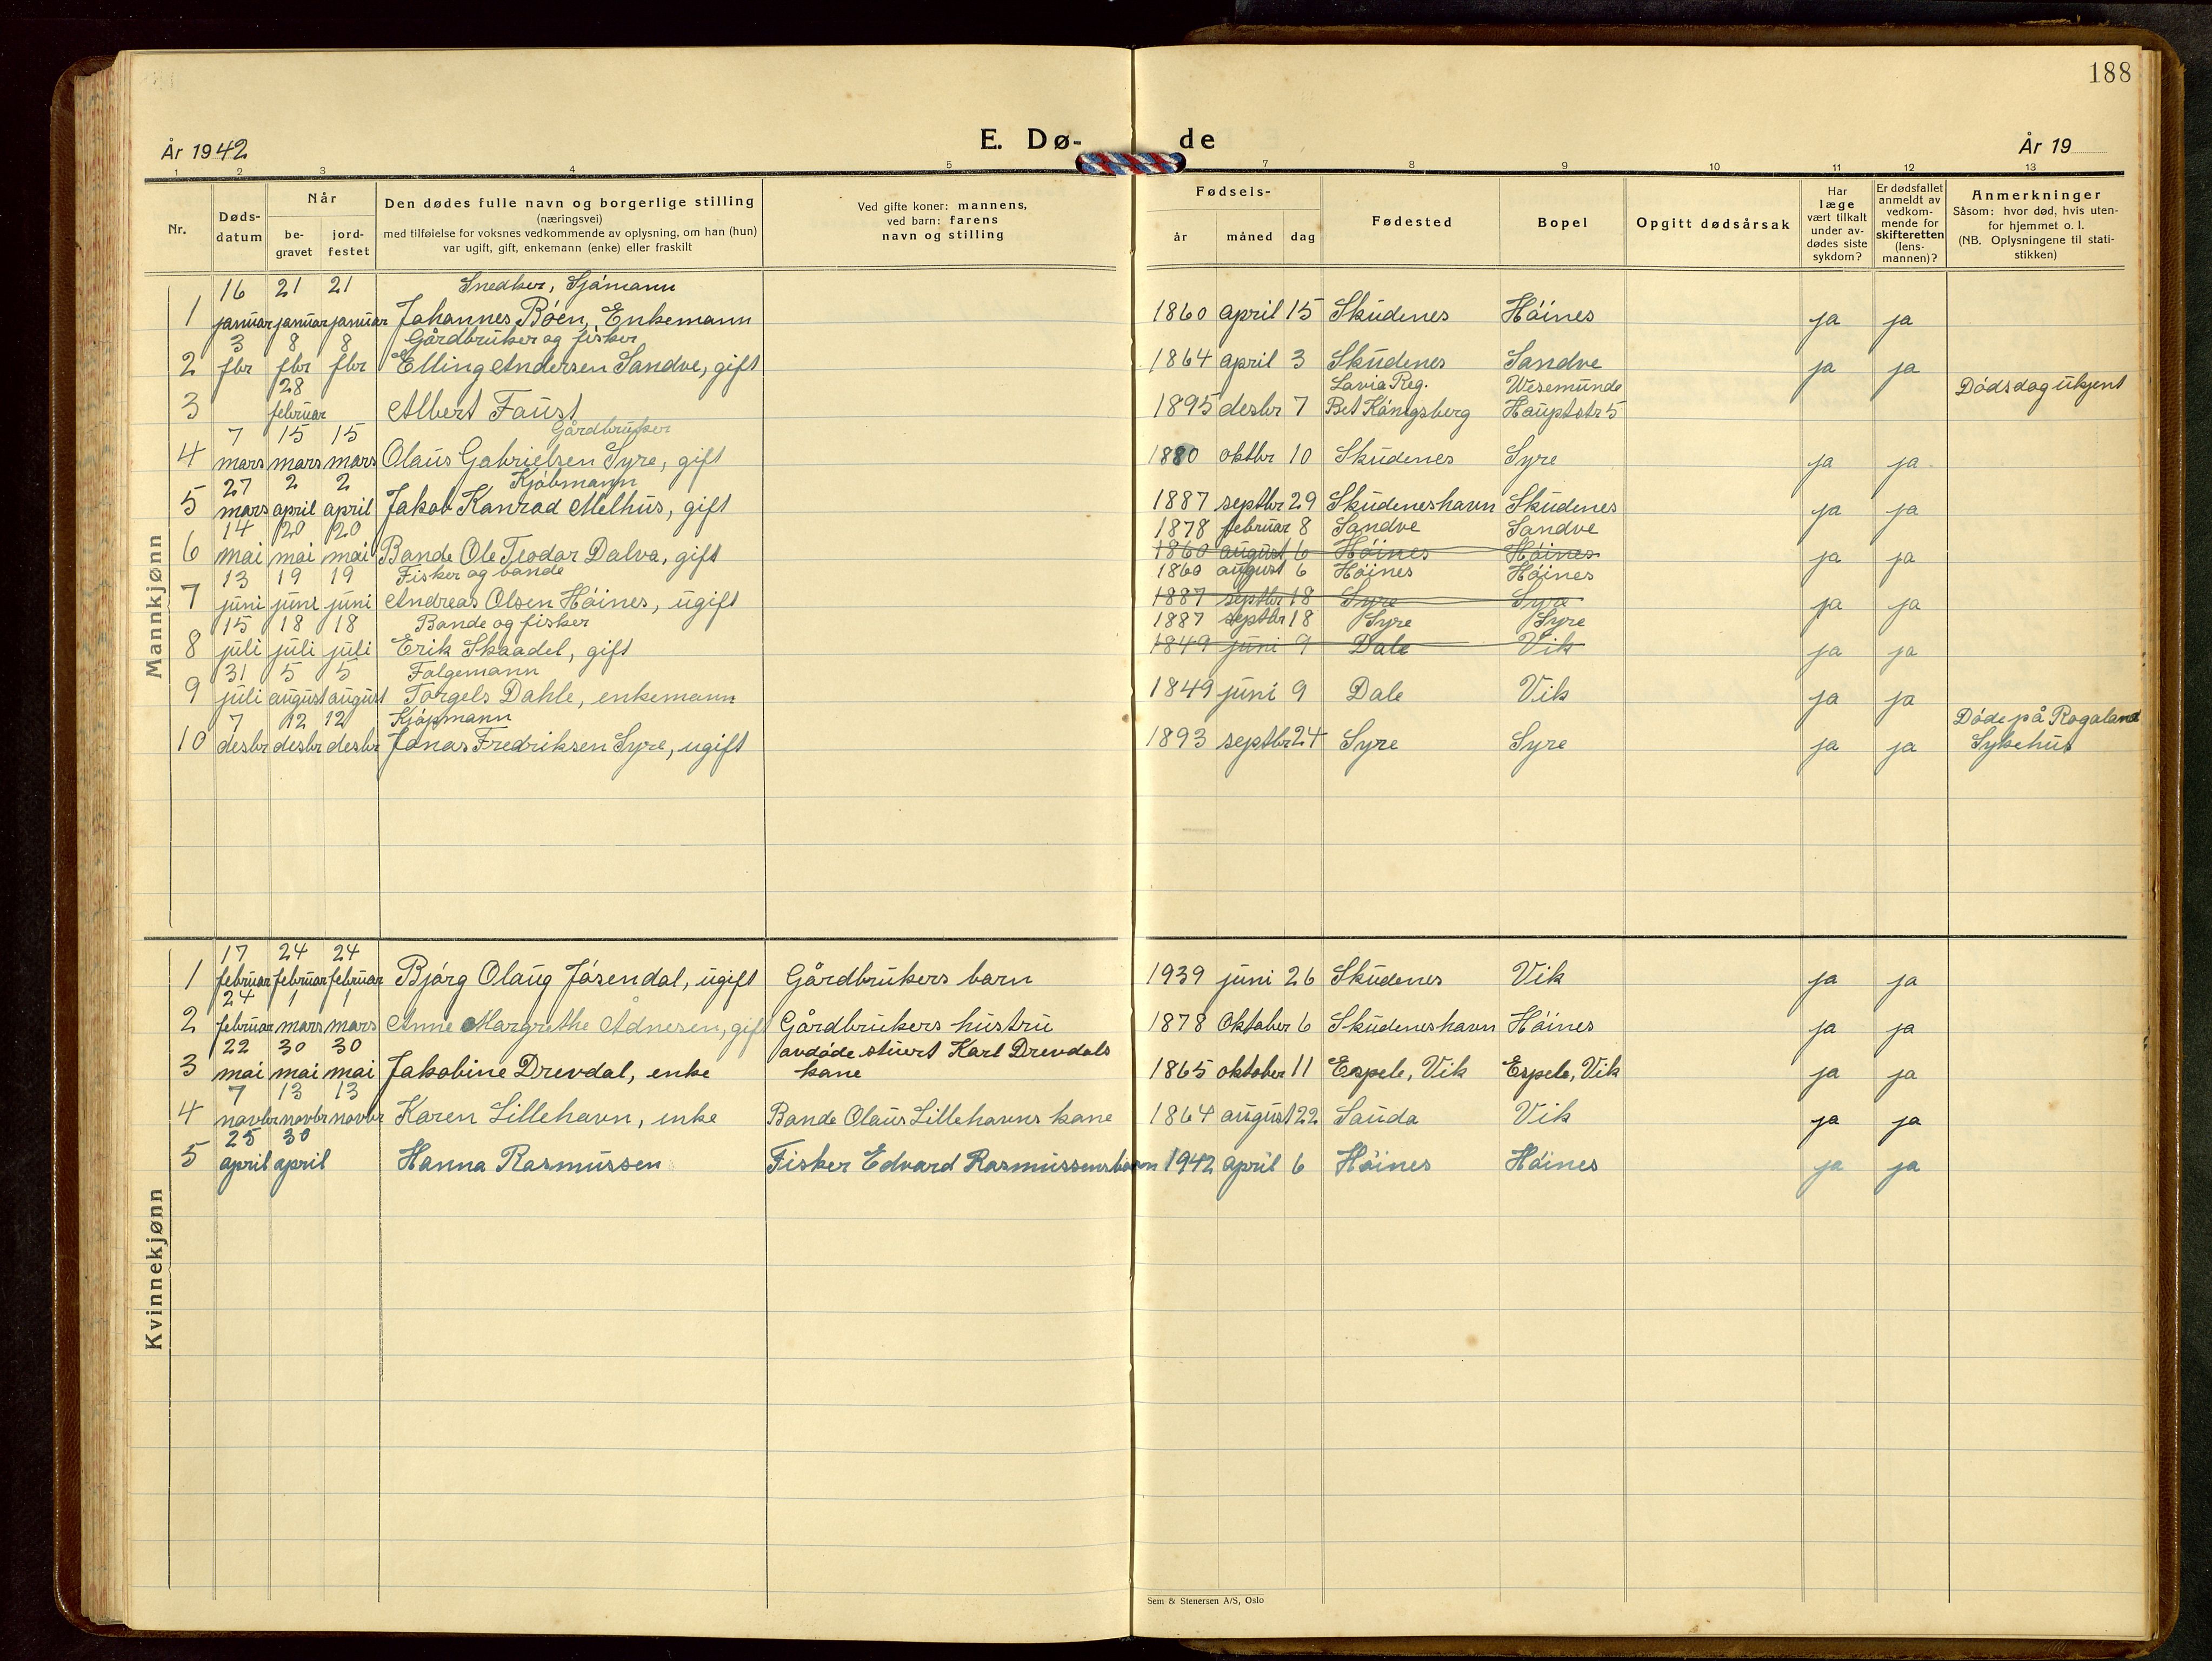 188
E. Dø- de
År 1942
År 19
1 2 3 4 5 7 8 9 10 11 12 13
Nr.
Døds-
datum
Når
be-
gravet
jord-
festet
Den dødes fulle navn og borgerlige stilling
(næringsvei)
med tilføielse for voksnes vedkommende av oplysning, om han (hun)
var ugift, gift, enkemann (enke) eller fraskilt
Ved gifte koner: mannens,
ved barn: farens
navn og stilling
Fødsels-
år måned dag
Fødested
Bopel
Opgitt dødsårsak
Har
læge
vært tilkalt
under av-
dødes siste
sykdom?
Er dødsfallet
anmeldt av
vedkom-
mende for
skifteretten
(lens-
mannen)?
Anmerkninger
Såsom: hvor død, hvis uten-
for hjemmet o. l.
(NB. Oplysningene til stati-
stikken)
Mannkjønn
16 21 21 Snedker, Sjómann
1 januar januar januar Johannes Bóen, Enkemann 1860 april 15 Skudenes Hóines ja ja
3 8 8 Gårdbruker og fisker
2 fbr fbr fbr Elling Andersen Sandve, gift 1864 april 3 Skudenes Sandve ja ja
28 Lavia Reg. Wesemünde Dódsdag ukjent
3 februar Albert Faust 1895 desbr 7 Bet Kónigsberg Hauptstr 5
7 15 15 Gårdbruker
4 mars mars mars Olaus Gabrielsen Syre, gift 1880 oktbr 10 Skudenes Syre ja ja
27 2 2 Kjóbmann
5 mars april april Jakob Konrad Melhus, gift 1887 septbr 29 Skudeneshavn Skudenes ja ja
14 20 20 1878 februar 8 Sandve Sandve
6 mai mai mai Bonde Ole Teodor Dalva, gift 1860 august 6 Hóines Hóines ja ja
13 19 19 Fisker og bonde 1860 august 6 Hóines Hóines
7 juni juni juni Andreas Olsen Hóines, ugift 1887 septbr 18 Syre Syre ja ja
15 18 18 Bonde og fisker 1887 septbr 18 Syre Syre
8 juli juli juli Erik Skaadel, gift 1849 juni 9 Dale Vik ja ja
31 5 5 Folgemann
9 juli august august Torgels Dahle, enkemann 1849 juni 9 Dale Vik ja ja
7 12 12 Kjópmann Dóde på Rogaland
10 desbr desbr desbr Jonas Fredriksen Syre, ugift 1893 septbr 24 Syre Syre ja ja Sykehus
Kvinnekjønn
17 24 24
1 februar februar februar Bjórg Olaug Jósendal, ugift Gårdbrukers barn 1939 juni 26 Skudenes Vik ja ja
24 1 1
2 februar mars mars Anne Margrethe Adnesen, gift Gårdbrukers hustru 1878 Oktober 6 Skudeneshavn Hóines ja ja
22 30 30 avdóde stuert Karl Drevdals
3 mai mai mai Jakobine Drevdal, enke kone 1865 oktober 11 Espele, Vik Espele, Vik ja ja
7 13 13
4 novbr novbr novbr Karen Lillehavn, enke Bonde Olaus Lillehavns kone 1864 august 22 Sauda Vik ja ja
25 30
5 april april Hanna Rasmussen Fisker Edvard Rasmussens barn 1942 april 6 Hóines Hóines ja ja
Sem & Stenersen A/S, Oslo